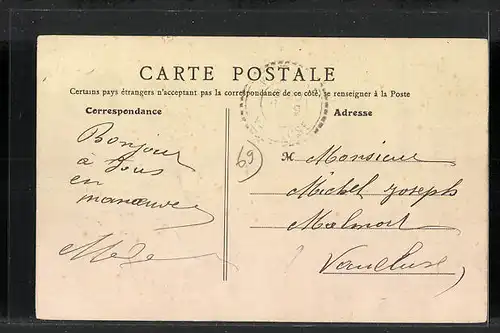 CARTE POSTALE
Certains pays étrangers n'acceptant pas la correspondance de ce côté, se renseigner à la Poste
Correspondance
Adresse
Bonjour
à tous
en
manœuvre
69
M. Monsieur
Michel Joseph
Malmort
Vaucluse